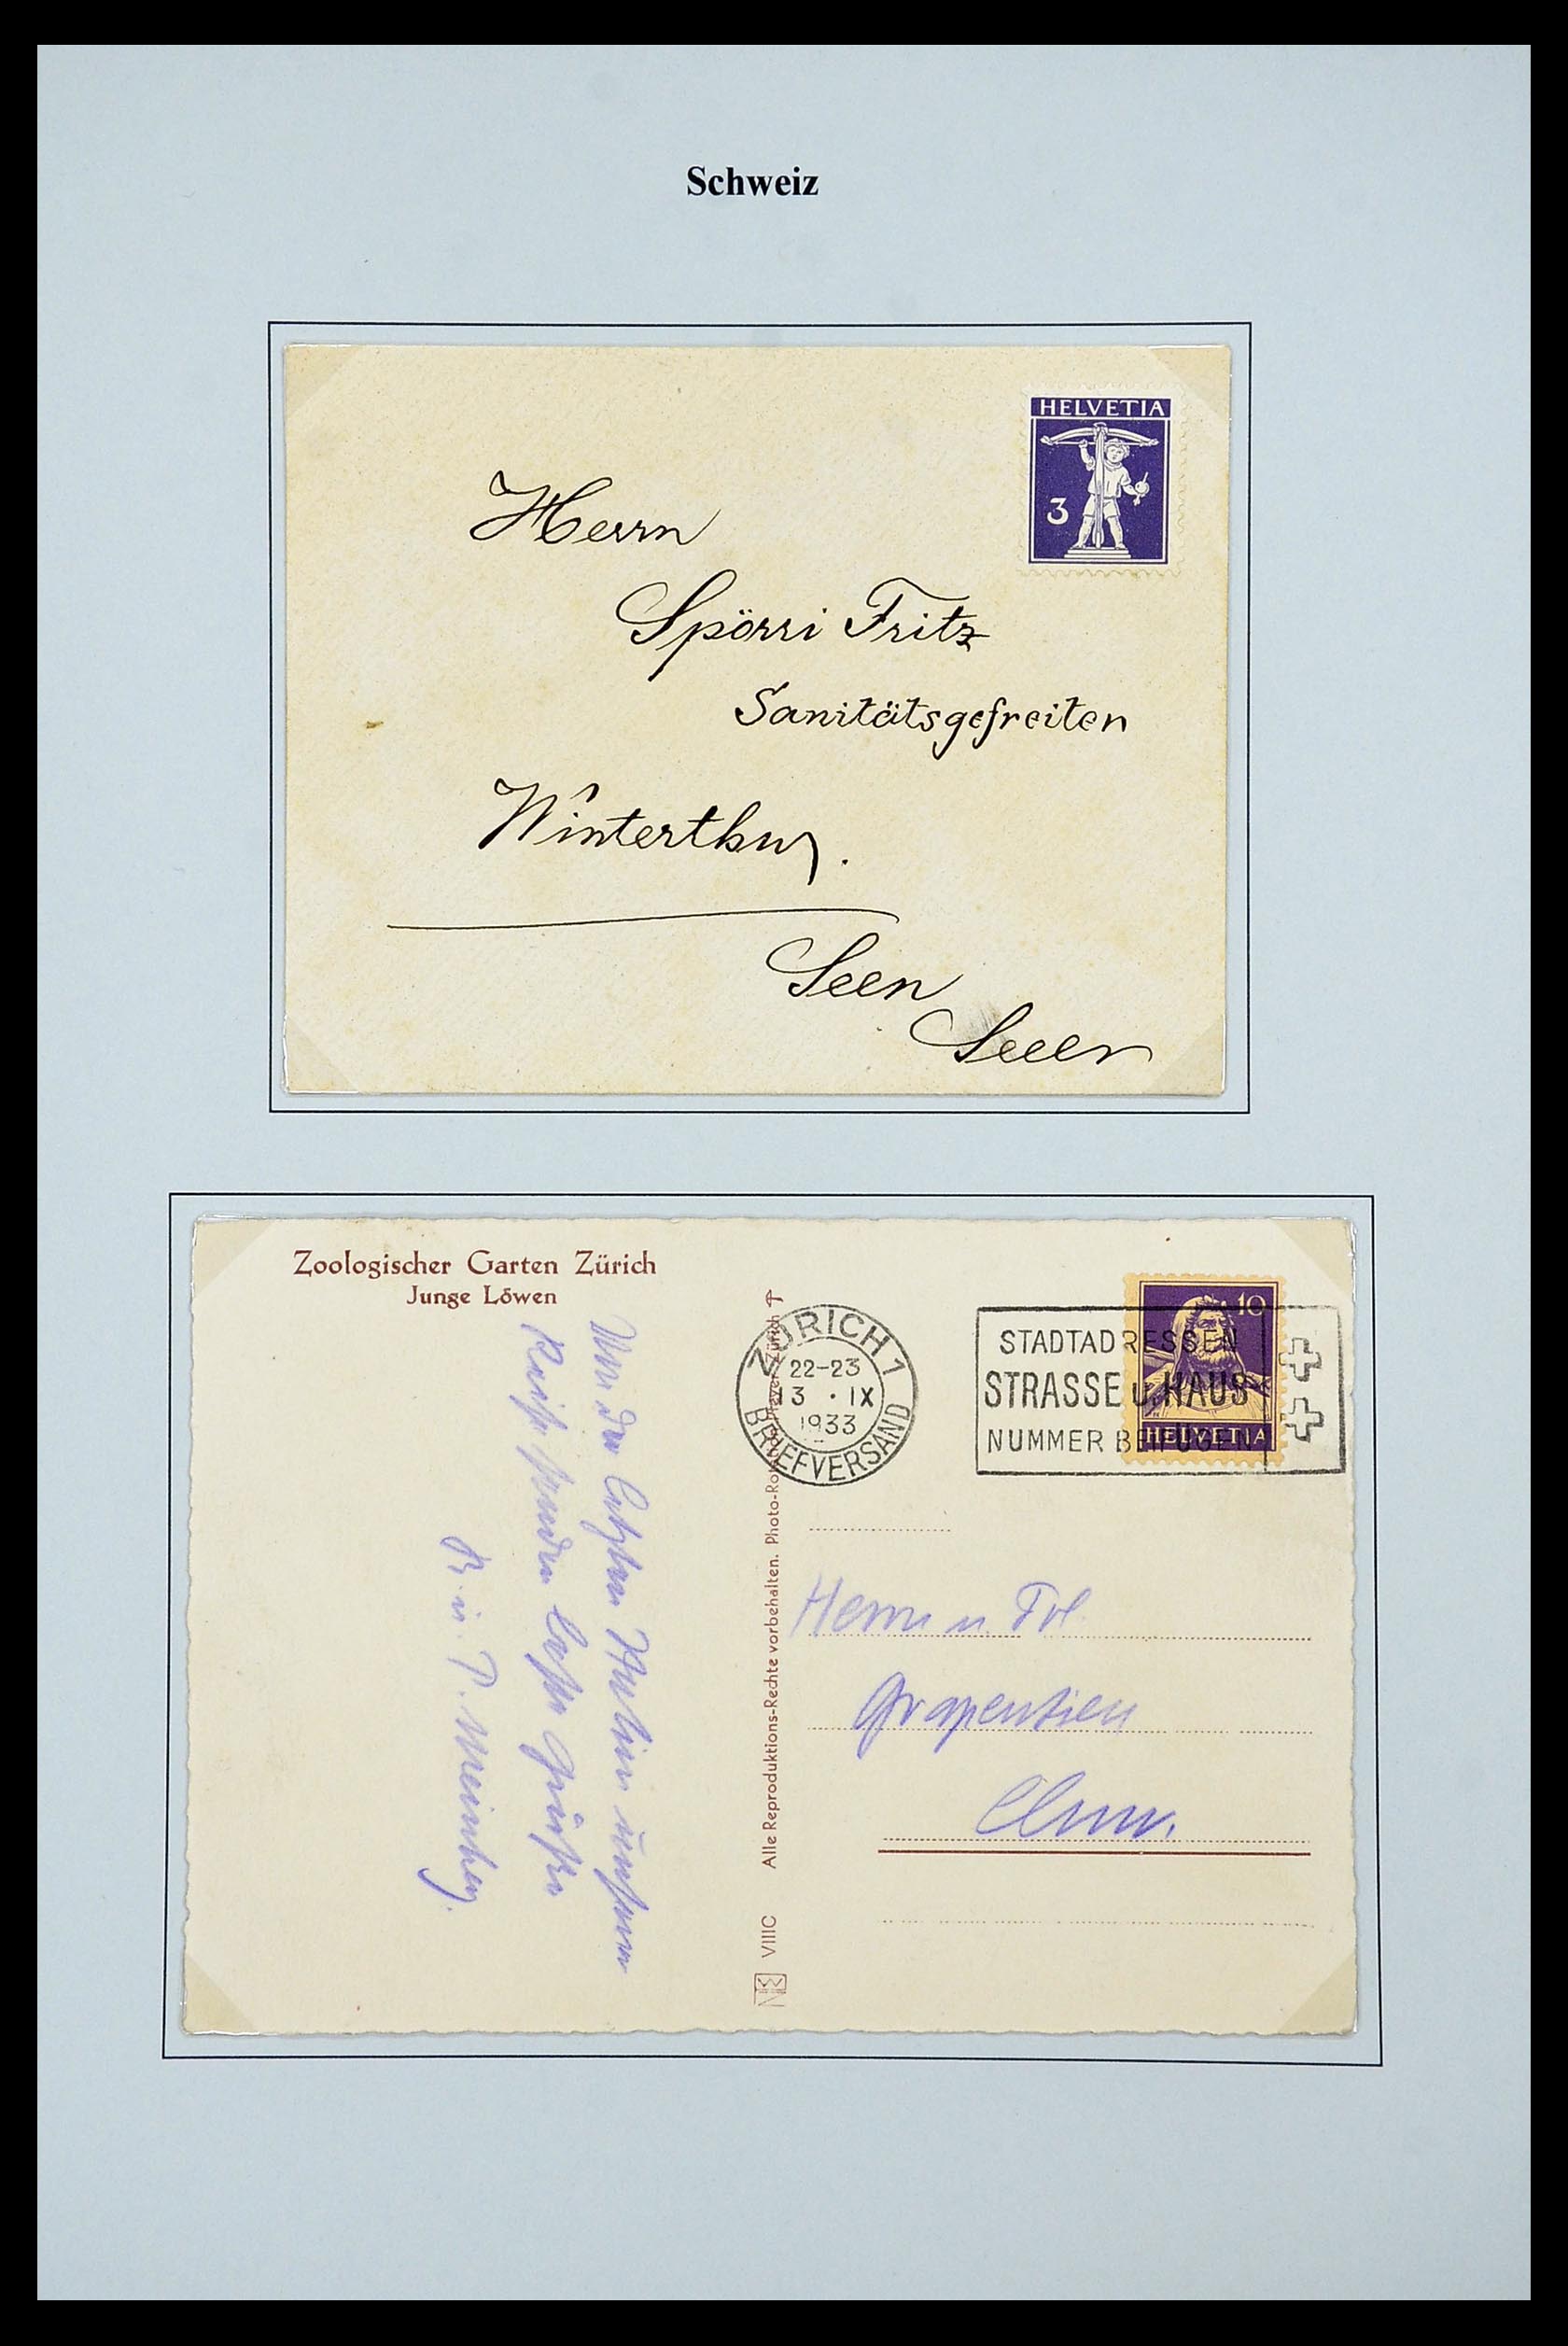 Schweiz
HELVETIA
3
Herrn
Spörri Fritz
Sanitätsgefreiten
Winterthur.
Seen
Seeen
Zoologischer Garten Zürich
Junge Löwen
Von der letzten
beste Grüße
Alle Reproduktions-Rechte vorbehalten. Photo-
VIIIC
ZÜRICH 1
22-23
13 · IX
1933
BRIEFVERSAND
STADTADRESSEN
STRASSE u. HAUS
NUMMER BEIFÜGEN
10
HELVETIA
Herrn u. Frl
Grapentien
Chur.